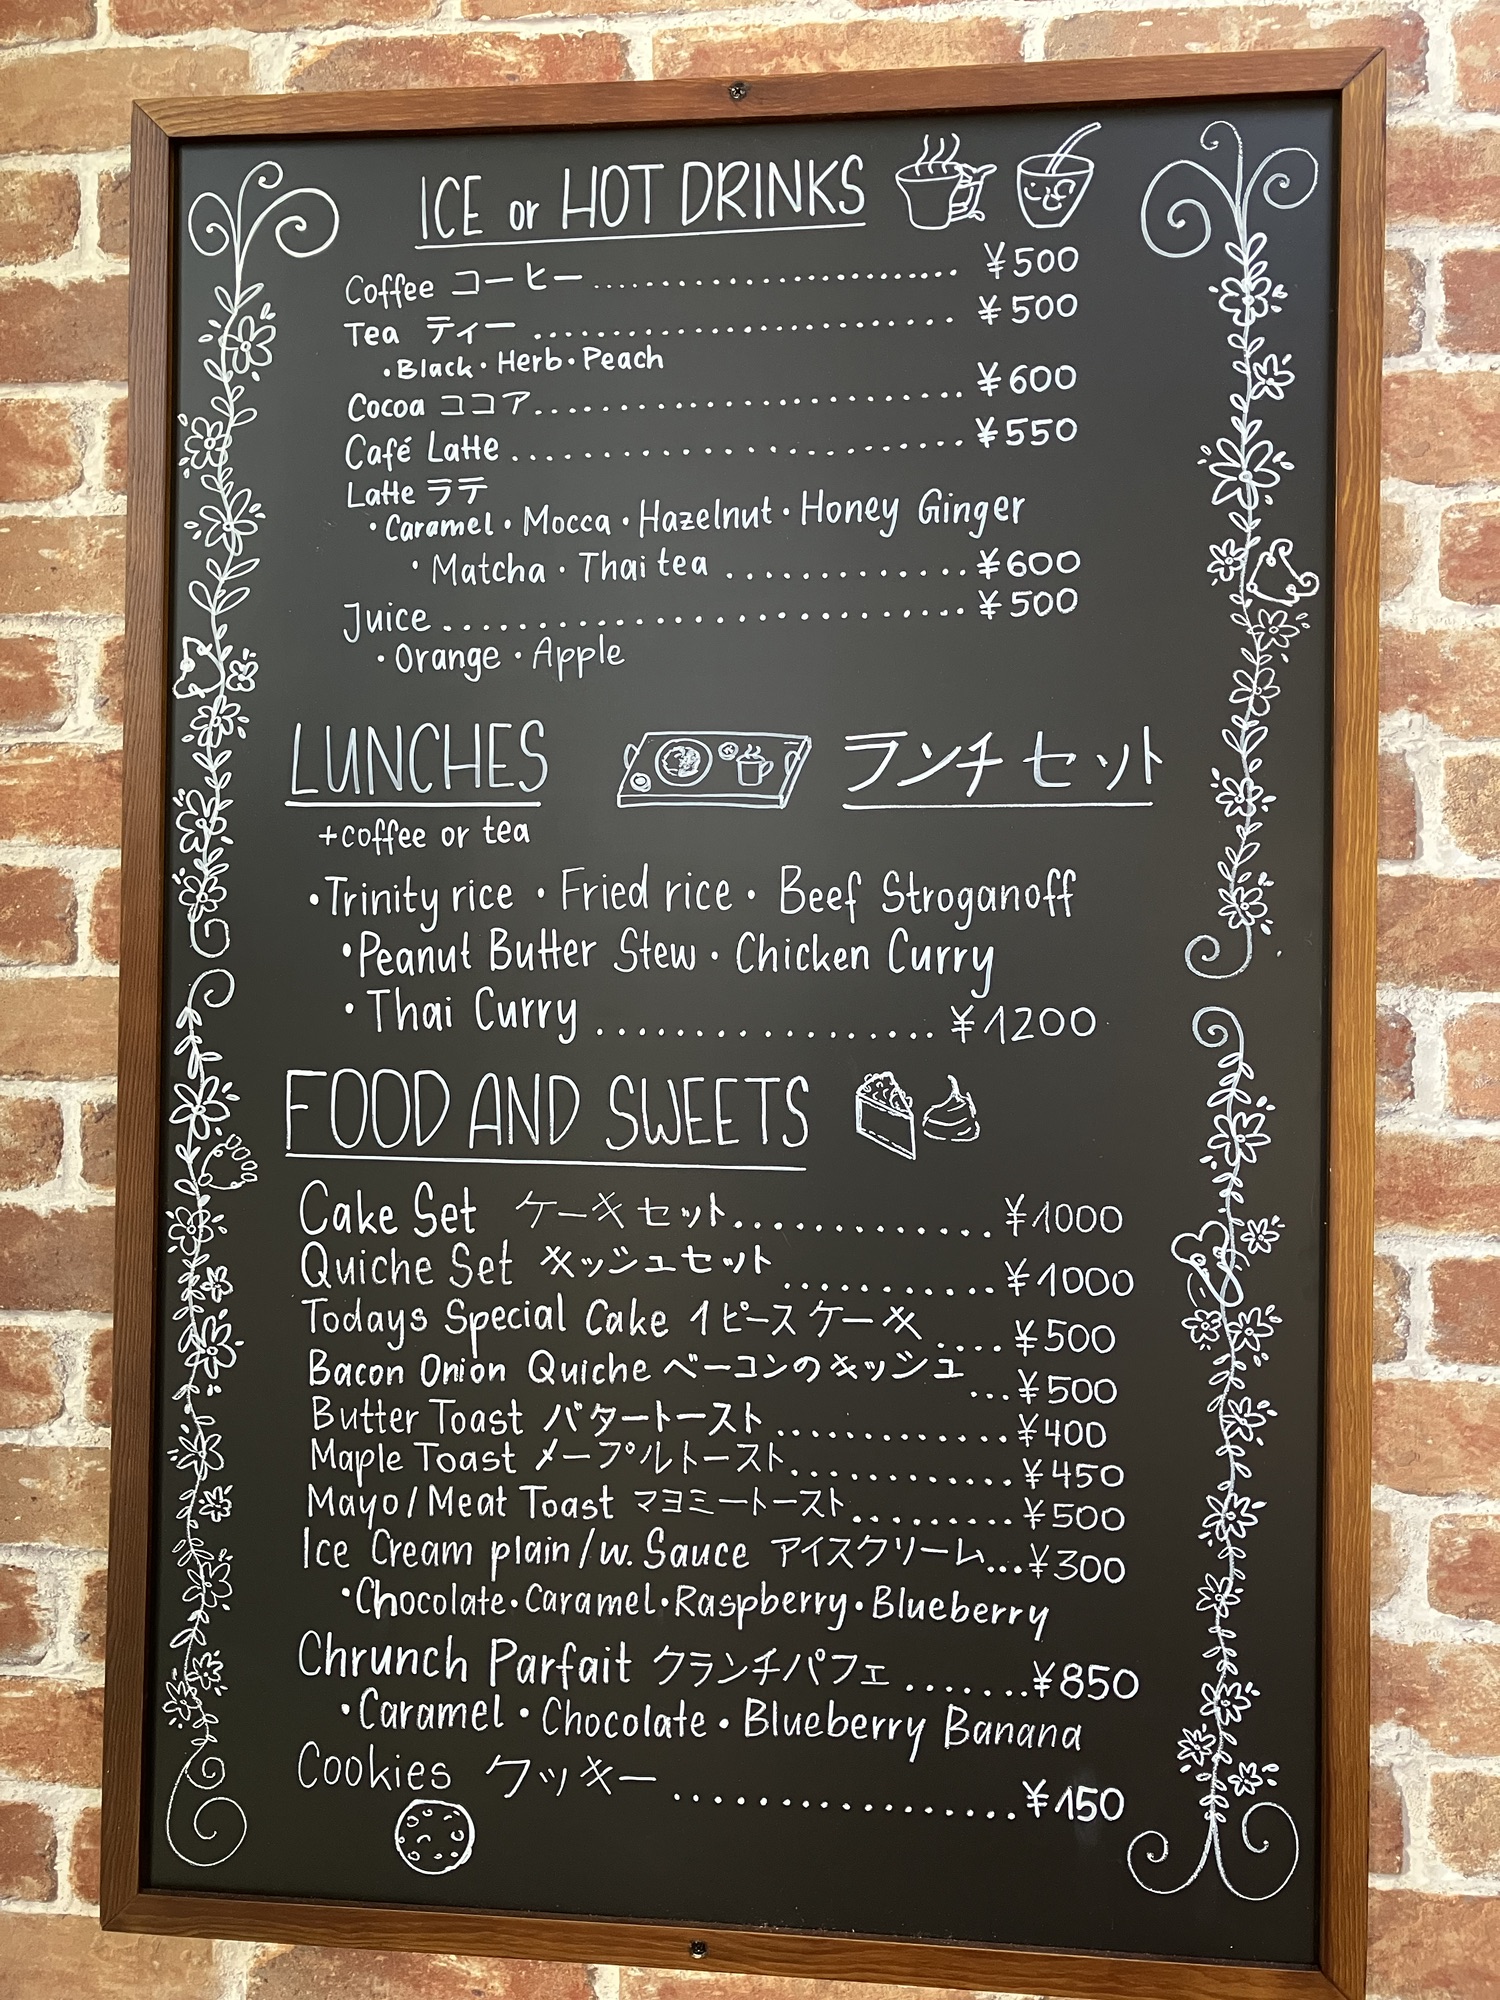 ICE or HOT DRINKS
Coffee コーヒー ¥500
Tea ティー ¥500
・Black・Herb・Peach
Cocoa ココア ¥600
Café Latte ¥550
Latte ラテ
・Caramel・Mocca・Hazelnut・Honey Ginger
・Matcha・Thai tea ¥600
Juice ¥500
・Orange・Apple
LUNCHES ランチセット
+coffee or tea
・Trinity rice・Fried rice・Beef Stroganoff
・Peanut Butter Stew・Chicken Curry
・Thai Curry ¥1200
FOOD AND SWEETS
Cake Set ケーキセット ¥1000
Quiche Set キッシュセット ¥1000
Todays Special Cake 1ピースケーキ ¥500
Bacon Onion Quiche ベーコンのキッシュ ¥500
Butter Toast バタートースト ¥400
Maple Toast メープルトースト ¥450
Mayo/Meat Toast マヨミートースト ¥500
Ice Cream plain/w. Sauce アイスクリーム ¥300
・Chocolate・Caramel・Raspberry・Blueberry
Chrunch Parfait クランチパフェ ¥850
・Caramel・Chocolate・Blueberry Banana
Cookies クッキー ¥150